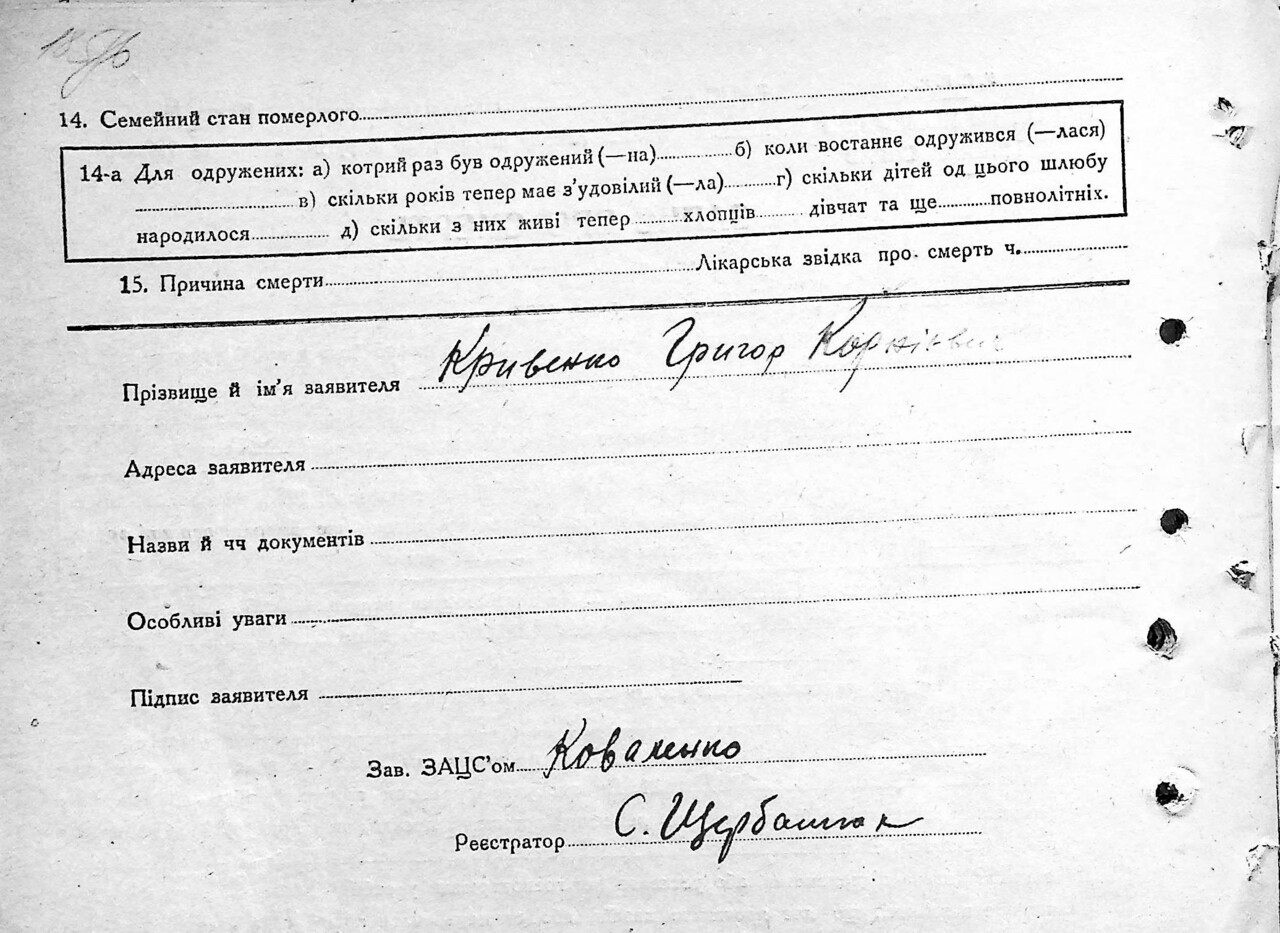 14. Семейний стан померлого
14-а Для одружених: а) котрий раз був одружений (—на) б) коли востаннє одружився (—лася)
в) скільки років тепер має з’удовілий (—ла) г) скільки дітей од цього шлюбу
народилося д) скільки з них живі тепер хлопців дівчат та ще повнолітніх.
15. Причина смерти Лікарська звідка про смерть ч.
Прізвище й ім’я заявителя Кривенко Григор
Адреса заявителя
Назви й чч документів
Особливі уваги
Підпис заявителя
Зав. ЗАЦС’ом Коваленко
Реєстратор С. Щербашак